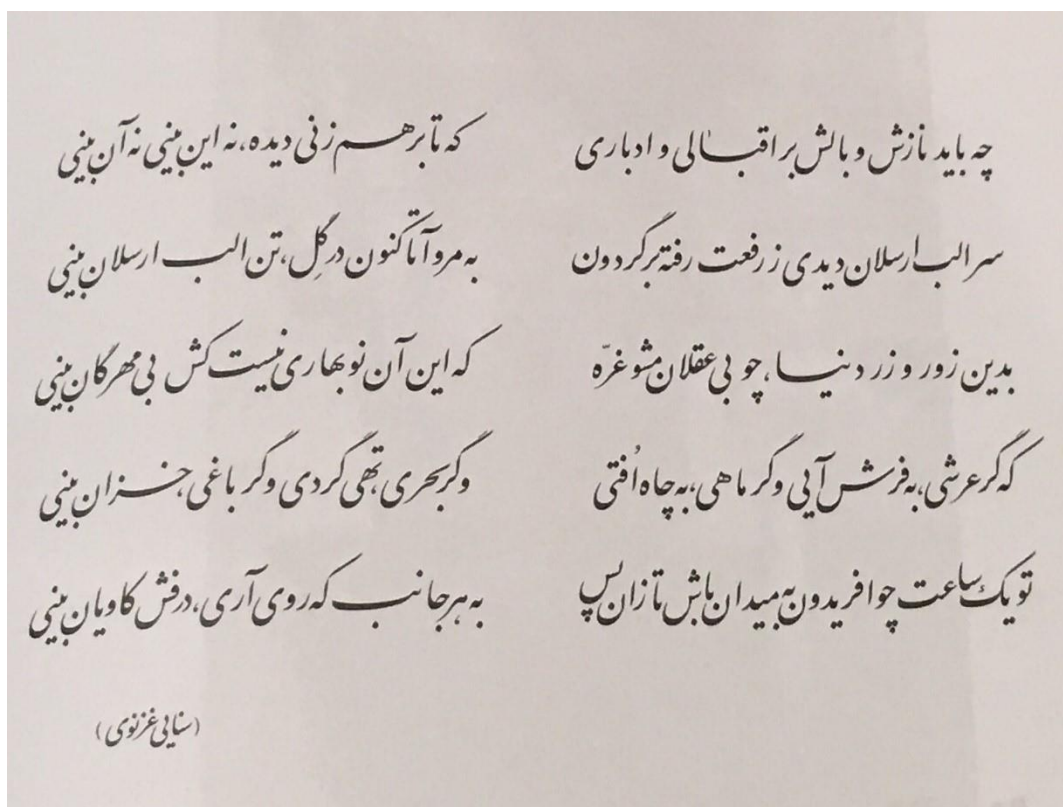 چه باید نازش و بالش بر اقبالی و ادباری که تا بر هم زنی دیده، نه این بینی نه آن بینی
سر الب ارسلان دیدی ز رفعت رفته بر گردون به مرو آ تا کنون در گِل، تن الب ارسلان بینی
بدین زور و زر دنیا، چو بی عقلان مشو غرّه که این آن نوبهاری نیست کش بی مهرگان بینی
که گر عرشی، به فرش آیی و گر ماهی، به چاه اُفتی وگر بحری، تهی گردی وگر باغی، خزان بینی
تو یک ساعت چو افریدون به میدان باش تا زان پس به هر جانب که روی آری، درفش کاویان بینی
(سنایی غزنوی)